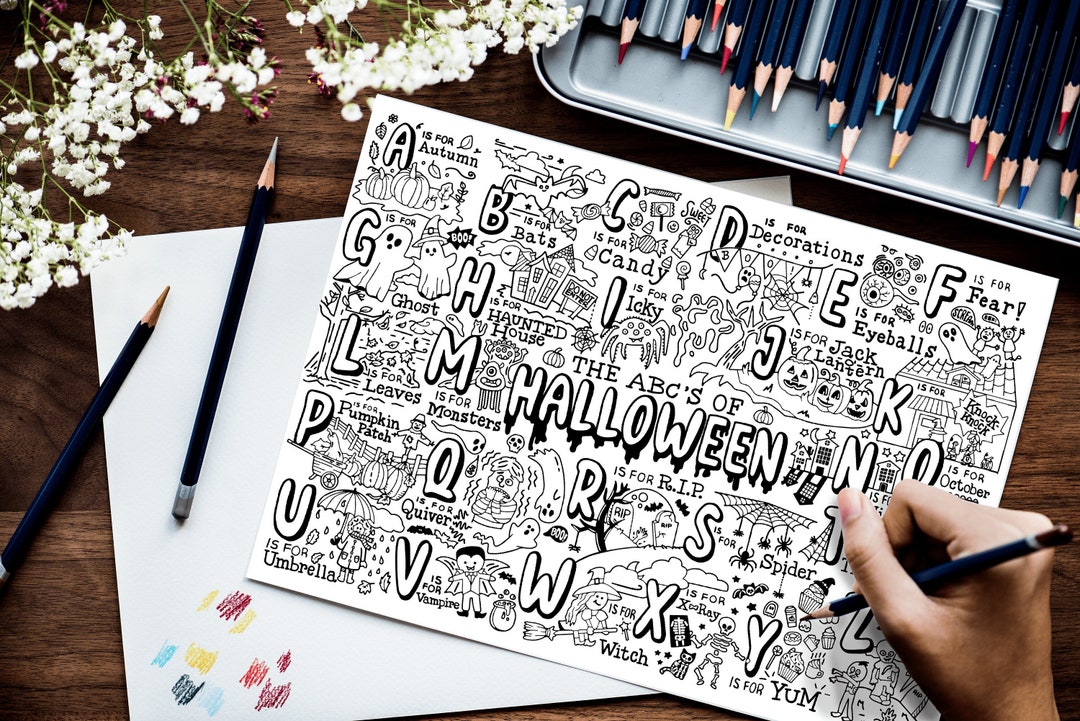 A IS FOR
Autumn
B
IS FOR
Bats
C
IS FOR
Candy
Sweet
D
IS FOR
Decorations
BOO!
E
IS FOR
Eyeballs
F
IS FOR
Fear!
G IS FOR
Ghost
BOO!
H
IS FOR
HAUNTED
HOUSE
DO NOT
I
IS FOR
Icky
J
IS FOR Jack
Lantern
K
IS FOR
Knock
Knock
L
IS FOR
Leaves
M
IS FOR
Monsters
THE ABC'S OF
HALLOWEEN
N
IS FOR
O
IS FOR
October
P IS FOR
Pumpkin
Patch
Q
IS FOR
Quiver
R
IS FOR R.I.P.
RIP
RIP
BOO!
S
IS FOR
Spider
T
U
IS FOR
Umbrella
V
IS FOR
Vampire
W
IS FOR
Witch
X
IS FOR
X-Ray
Y
IS FOR YUM
Z